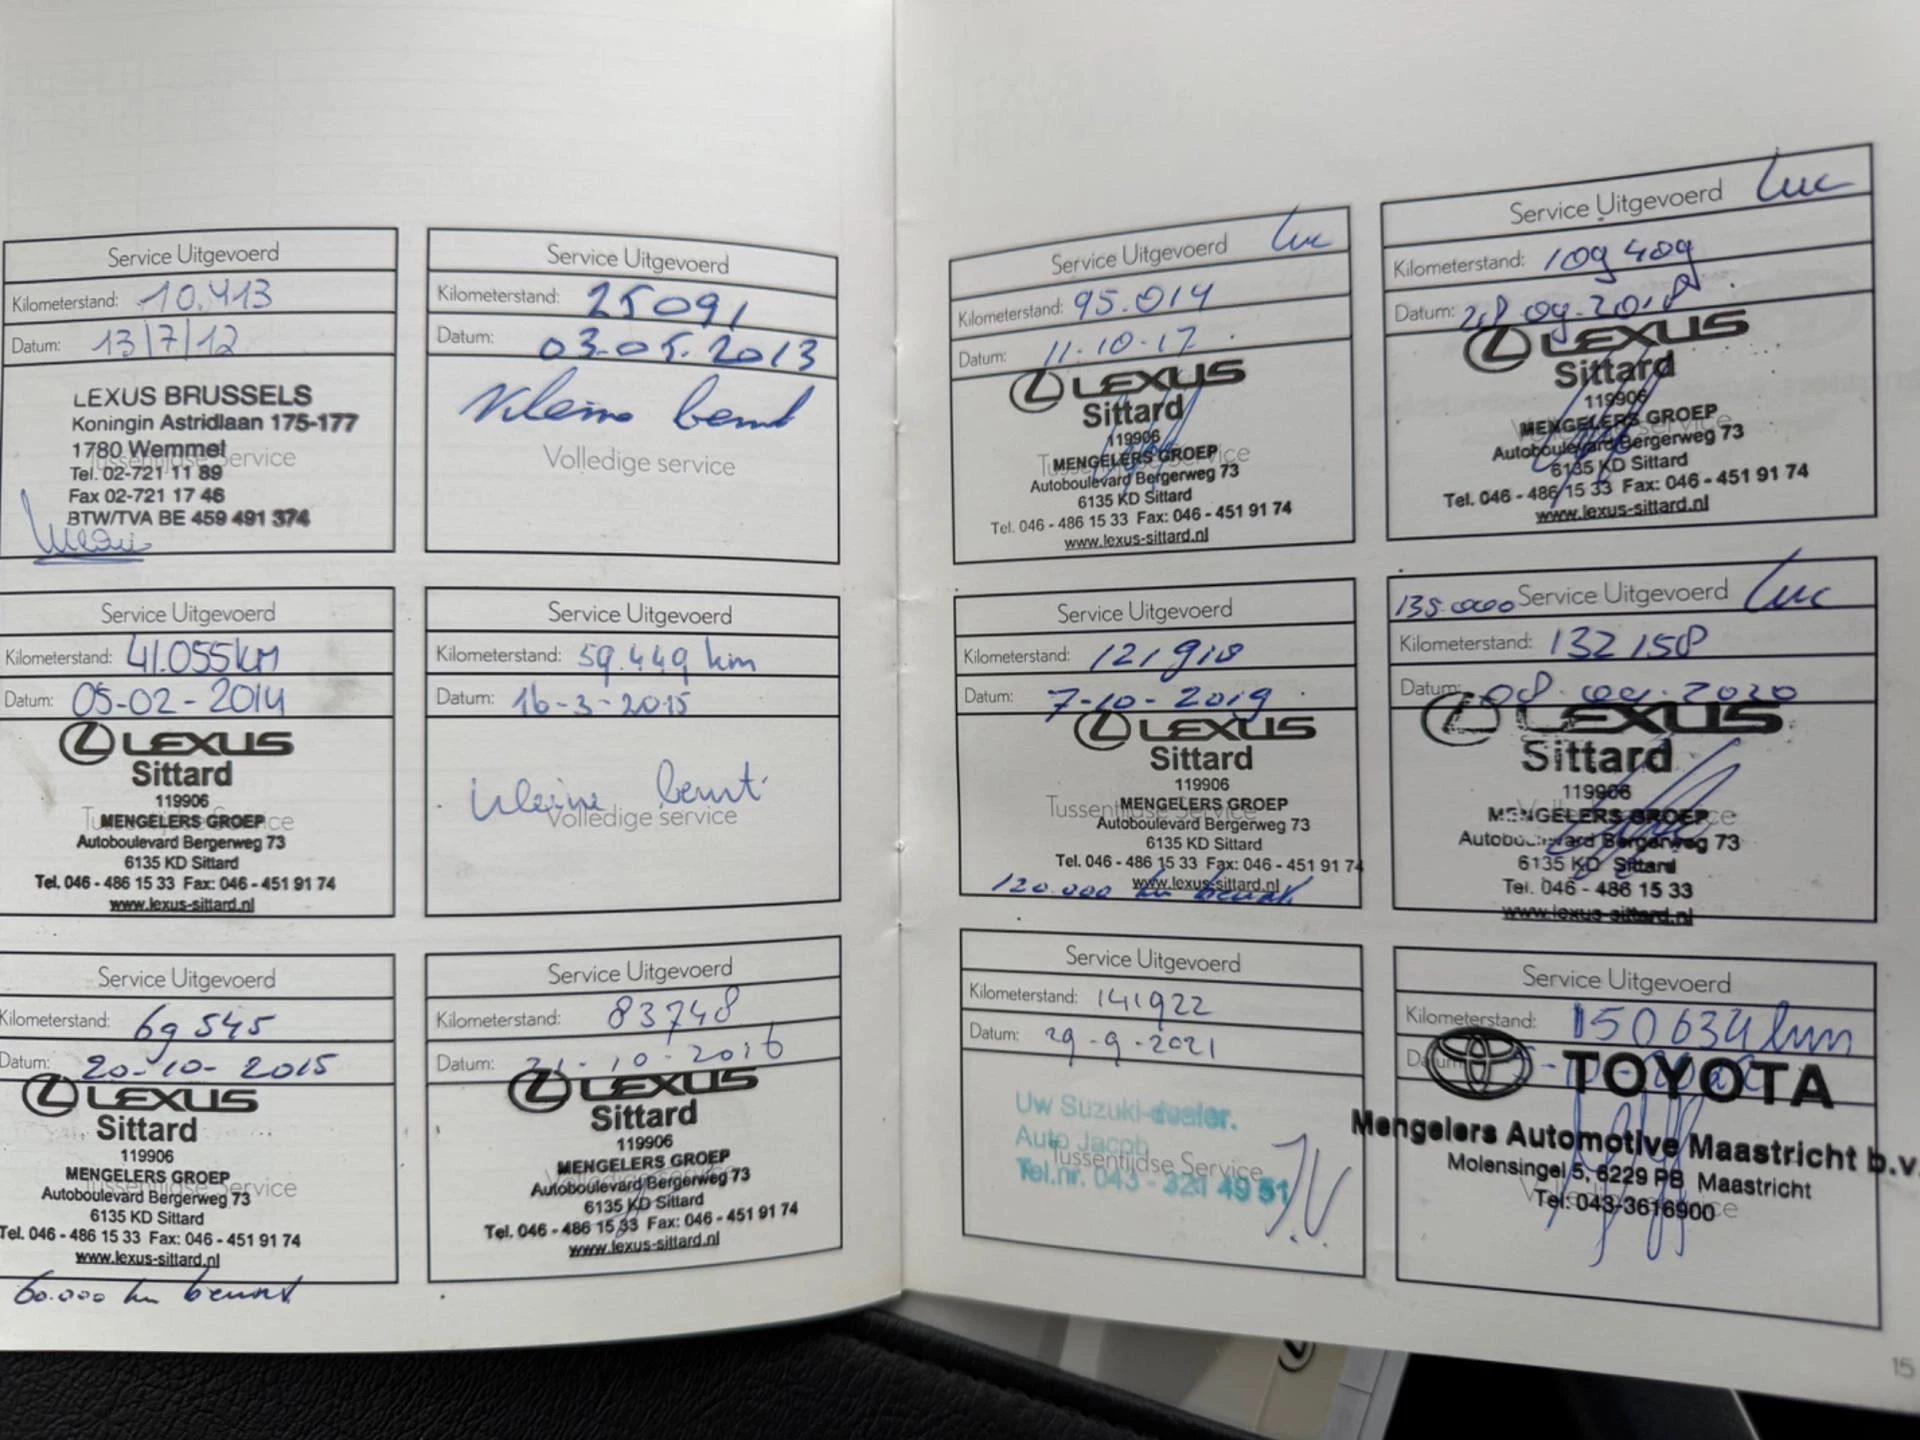 Service Uitgevoerd
Kilometerstand: 10.413
Datum: 13/7/12
LEXUS BRUSSELS
Koningin Astridlaan 175-177
1780 Wemmel
Tussentijdse Service
Tel. 02-721 11 89
Fax 02-721 17 46
BTW/TVA BE 459 491 374
Service Uitgevoerd
Kilometerstand: 25091
Datum: 03-05-2013
Kleine beurt
Volledige service
Service Uitgevoerd
Kilometerstand: 41.055 km
Datum: 05-02-2014
LEXUS
Sittard
119906
Tussentijdse Service
MENGELERS GROEP
Autoboulevard Bergerweg 73
6135 KD Sittard
Tel. 046 - 486 15 33 Fax: 046 - 451 91 74
www.lexus-sittard.nl
Service Uitgevoerd
Kilometerstand: 59.449 km
Datum: 16-3-2015
Kleine beurt
Volledige service
Service Uitgevoerd
Kilometerstand: 69 545
Datum: 20-10-2015
LEXUS
Sittard
119906
MENGELERS GROEP
Tussentijdse Service
Autoboulevard Bergerweg 73
6135 KD Sittard
Tel. 046 - 486 15 33 Fax: 046 - 451 91 74
www.lexus-sittard.nl
60.000 km beurt
Service Uitgevoerd
Kilometerstand: 83748
Datum: 21-10-2016
LEXUS
Sittard
119906
MENGELERS GROEP
Volledige service
Autoboulevard Bergerweg 73
6135 KD Sittard
Tel. 046 - 486 15 33 Fax: 046 - 451 91 74
www.lexus-sittard.nl
Service Uitgevoerd Luc
Kilometerstand: 95.014
Datum: 11-10-17
LEXUS
Sittard
119906
Tussentijdse Service
MENGELERS GROEP
Autoboulevard Bergerweg 73
6135 KD Sittard
Tel. 046 - 486 15 33 Fax: 046 - 451 91 74
www.lexus-sittard.nl
Service Uitgevoerd Luc
Kilometerstand: 109 409
Datum: 28 09-2018
LEXUS
Sittard
119906
MENGELERS GROEP
Volledige service
Autoboulevard Bergerweg 73
6135 KD Sittard
Tel. 046 - 486 15 33 Fax: 046 - 451 91 74
www.lexus-sittard.nl
Service Uitgevoerd
Kilometerstand: 121918
Datum: 7-10-2019
LEXUS
Sittard
119906
MENGELERS GROEP
Tussentijdse Service
Autoboulevard Bergerweg 73
6135 KD Sittard
Tel. 046 - 486 15 33 Fax: 046 - 451 91 74
www.lexus-sittard.nl
120.000 km beurt
135.0000 Service Uitgevoerd Luc
Kilometerstand: 132 158
Datum: 2020
LEXUS
Sittard
119906
MENGELERS GROEP
Volledige service
Autoboulevard Bergerweg 73
6135 KD Sittard
Tel. 046 - 486 15 33
www.lexus-sittard.nl
Service Uitgevoerd
Kilometerstand: 141922
Datum: 29-9-2021
Uw Suzuki-dealer.
Auto Jacob
Tussentijdse Service
Tel.nr. 043 - 321 49 51
J.V.
Service Uitgevoerd
Kilometerstand: 150634 km
Datum:
TOYOTA
Mengelers Automotive Maastricht b.v.
Molensingel 5, 6229 PB Maastricht
Volledige service
Tel: 043-3616900
15